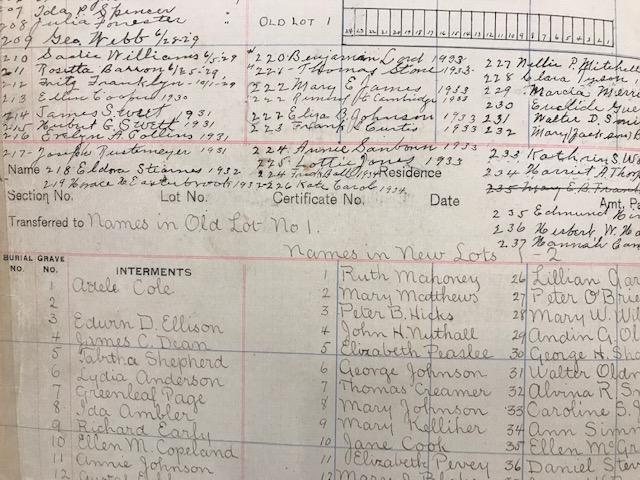 207 Ida P. Spencer "
208 Julia Forrester "
209 Geo. Webb 6/28-29
210 Sadie Williams 6/5-29
211 Rosetta Barrow 6/25-29
212 Fritz Franklyn -10/1-29
213 Ellen Cooper 1930
214 James Swett 1931
215 Herbert G. Swett 1931
216 Evelyn A. Collins 1931
217 Joseph Rustemeyer 1931
Name 218 Eldora Stearnes 1932
219 Horace W. Easterbrook 1932
OLD LOT 1
24 23 22 21 20 19 18 17 16 15 14 13 12 11 10 9 8 7 6 5 4 3 2 1
220 Benjamin Lord 1933
221 - Thomas Stone 1933
222 Mary E. James 1933
222 Removed to Cambridge 1933
222 Eliza B. Johnson 1933
223 Frank Curtis 1933
224 Annie Sanborn 1933
225 Lottie Jones 1933
224 Fred Ball 1934 Residence
226 Kate Carol 1934
227 Nellie P. Mitchell
228 Clara Tyson
229 Marcia Merri
230 Euclide Gue
231 Walter D. Smi
232 Mary (Jackson) K
233 Kathryn S. Wa
234 Harriet A. Thomp
235 May E. B. Fran
235 Edmund
236 Herbert W. Ha
237 Hannah Can
Section No. Lot No. Certificate No. Date Amt. Pa
Transferred to Names in Old Lot No 1.
Names in New Lots } - 2
BURIAL NO. GRAVE NO. INTERMENTS
1 Adele Cole
2
3 Edwin D. Ellison
4 James C. Dean
5 Tabitha Shepherd
6 Lydia Anderson
7 Greenleaf Page
8 Ida Ambler
9 Richard Early
10 Ellen M. Copeland
11 Annie Johnson
12
1 Ruth Mahoney
2 Mary Matthews
3 Peter B. Hicks
4 John H. Nuthall
5 Elizabeth Peaslee
6 George Johnson
7 Thomas Creamer
8 Mary Johnson
9 Mary Kelliher
10 Jane Cook
11 Elizabeth Pevey
12
26 Lillian Gar
27 Peter O'Bri
28 Mary W. Wil
29 Andin G. Ol
30 George H. Sha
31 Walter Oldn
32 Alvina R. Sn
33 Caroline S.
34 Ann Simm
35 Ellen McGra
36 Daniel Stev